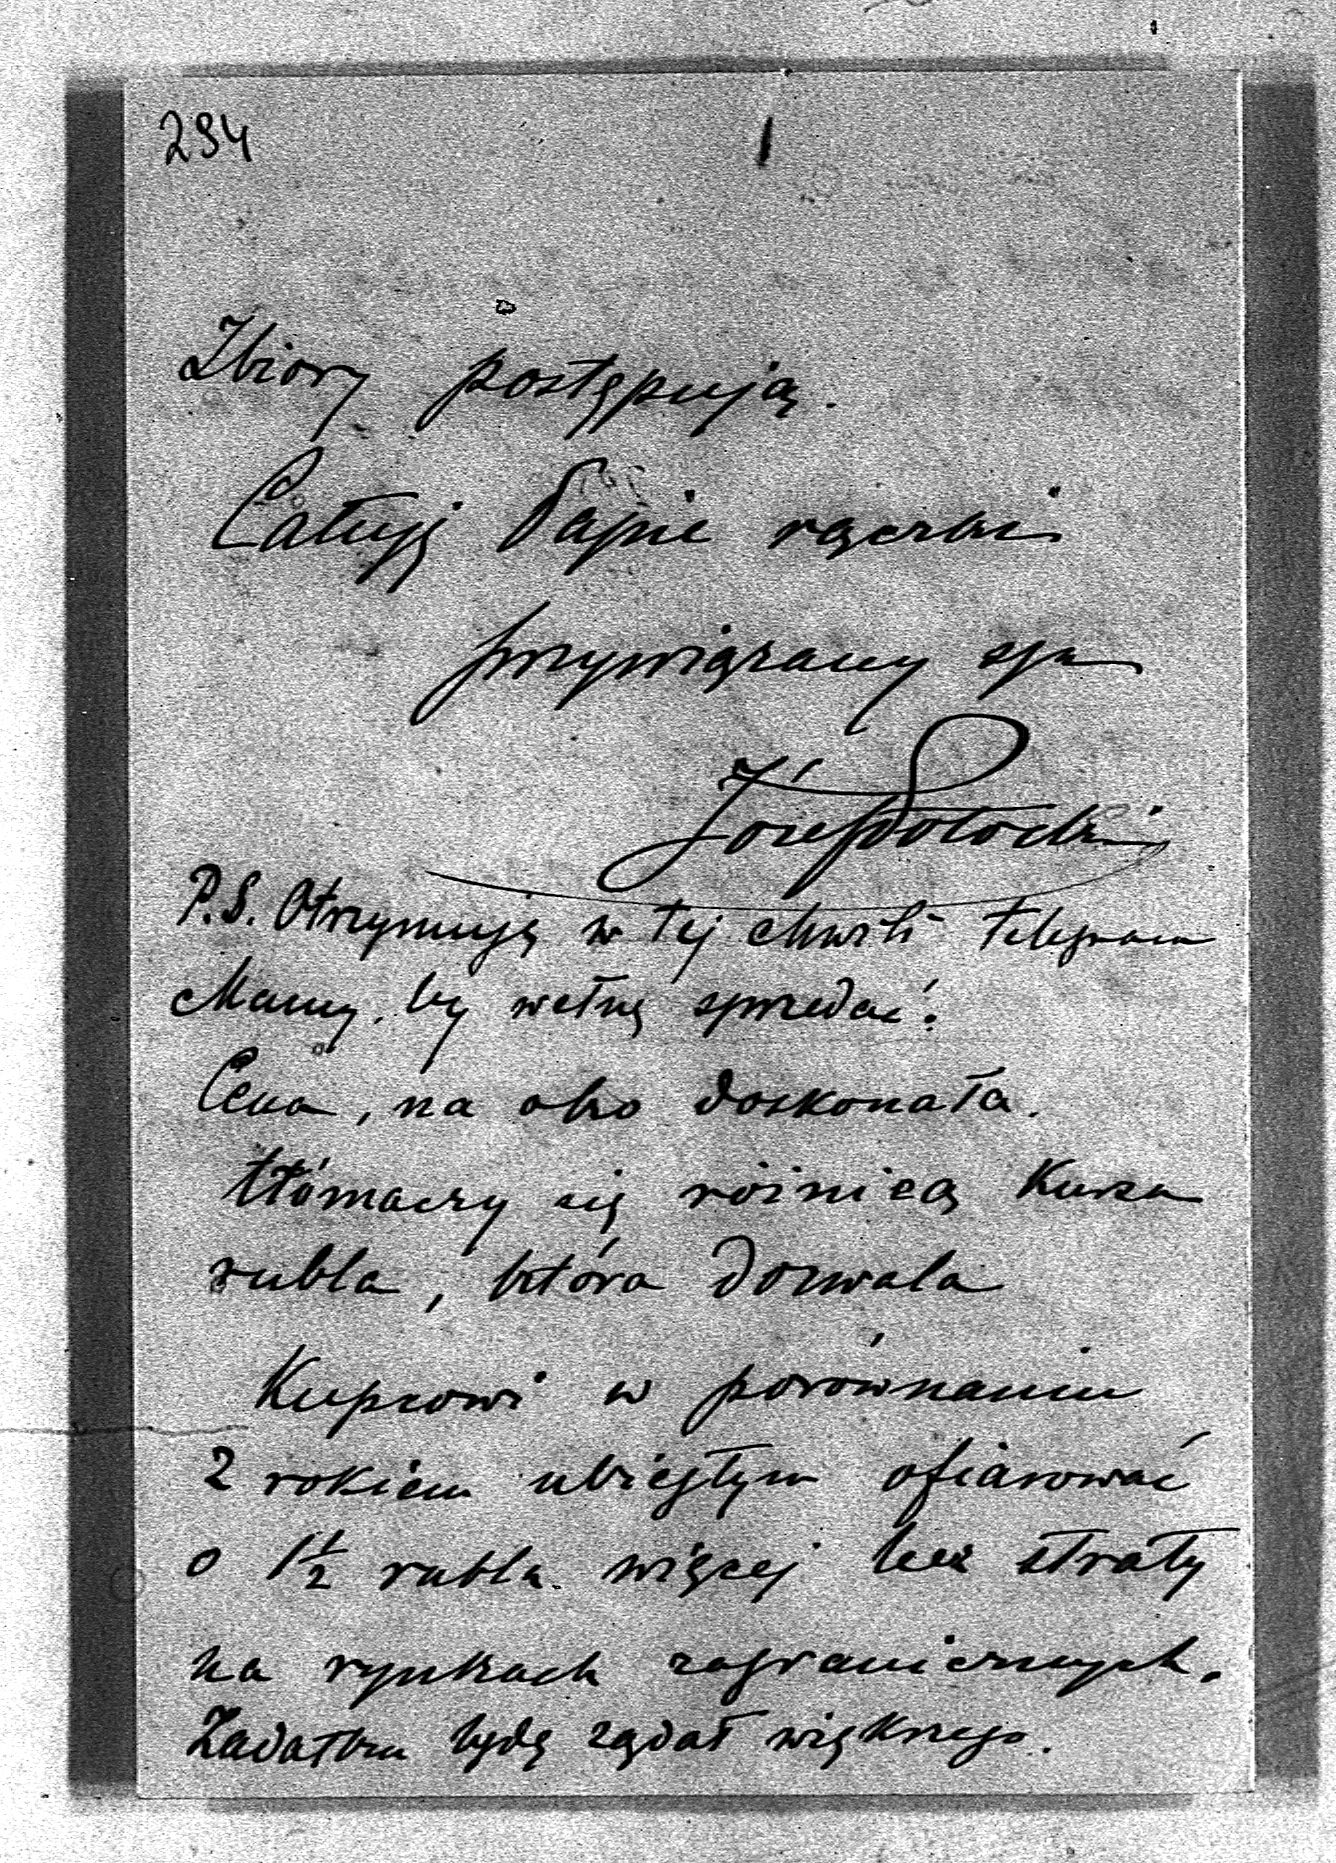 294
Zbiory postępują.
Całuję Papie rączki
przywiązany syn
Józef Potocki
P.S. Otrzymuję w tej chwili telegram
Mamy, by wełnę sprzedać.
Cena, na oko doskonała.
tłómaczy się różnicą Kursu
rubla, która dozwala
Kupcowi w porównaniu
z rokiem ubiegłym ofiarować
o 1½ rubla więcej bez straty
na rynkach zagranicznych.
Zadatku będę żądał większego.